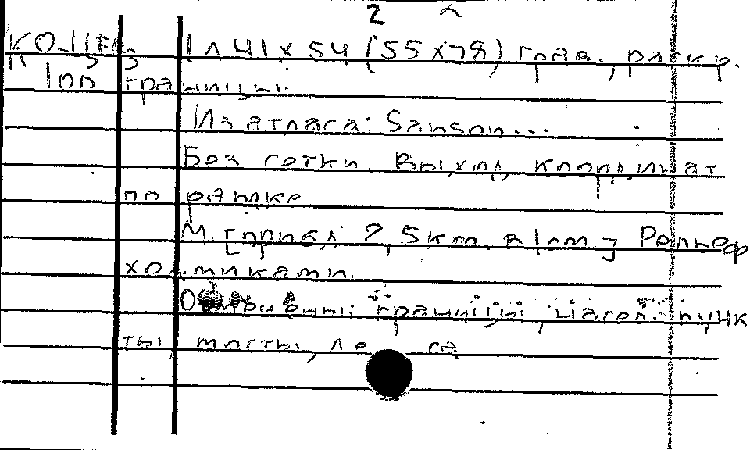 2
1л 41х54 (55х78) грав., раскр.
границы.
Из атласа: Sanson...
Без сетки. Выход координат
по рамке
М. [прибл. 2,5км. в 1см.] Рельеф
холмиками.
границы, насел. пунк
ты, мосты, леса